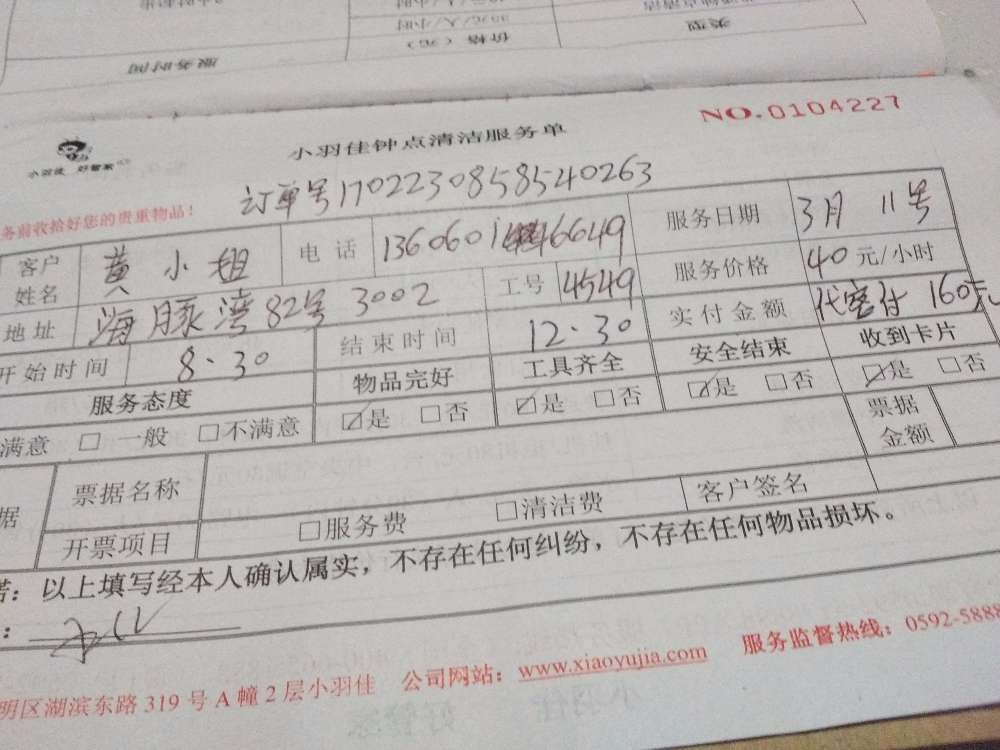 服务时间
价格（元）
类型
30元/人/小时
NO.0104227
小羽佳 好管家
小羽佳钟点清洁服务单
订单号1702230858540263
务前收拾好您的贵重物品！
客户姓名 黄小姐 电话 服务日期 3月11号
地址 海豚湾82号3002 工号 4549 服务价格 40元/小时
开始时间 8.30 结束时间 12.30 实付金额 代客付160元
服务态度 物品完好 工具齐全 安全结束 收到卡片
满意 □ 一般 □不满意 ☑是 □否 ☑是 □否 ☑是 □否 ☑是 □否
据 票据名称 票据金额
开票项目 □服务费 □清洁费 客户签名
诺：以上填写经本人确认属实，不存在任何纠纷，不存在任何物品损坏。
：
明区湖滨东路319号A幢2层小羽佳 公司网站：www.xiaoyujia.com 服务监督热线：0592-5888